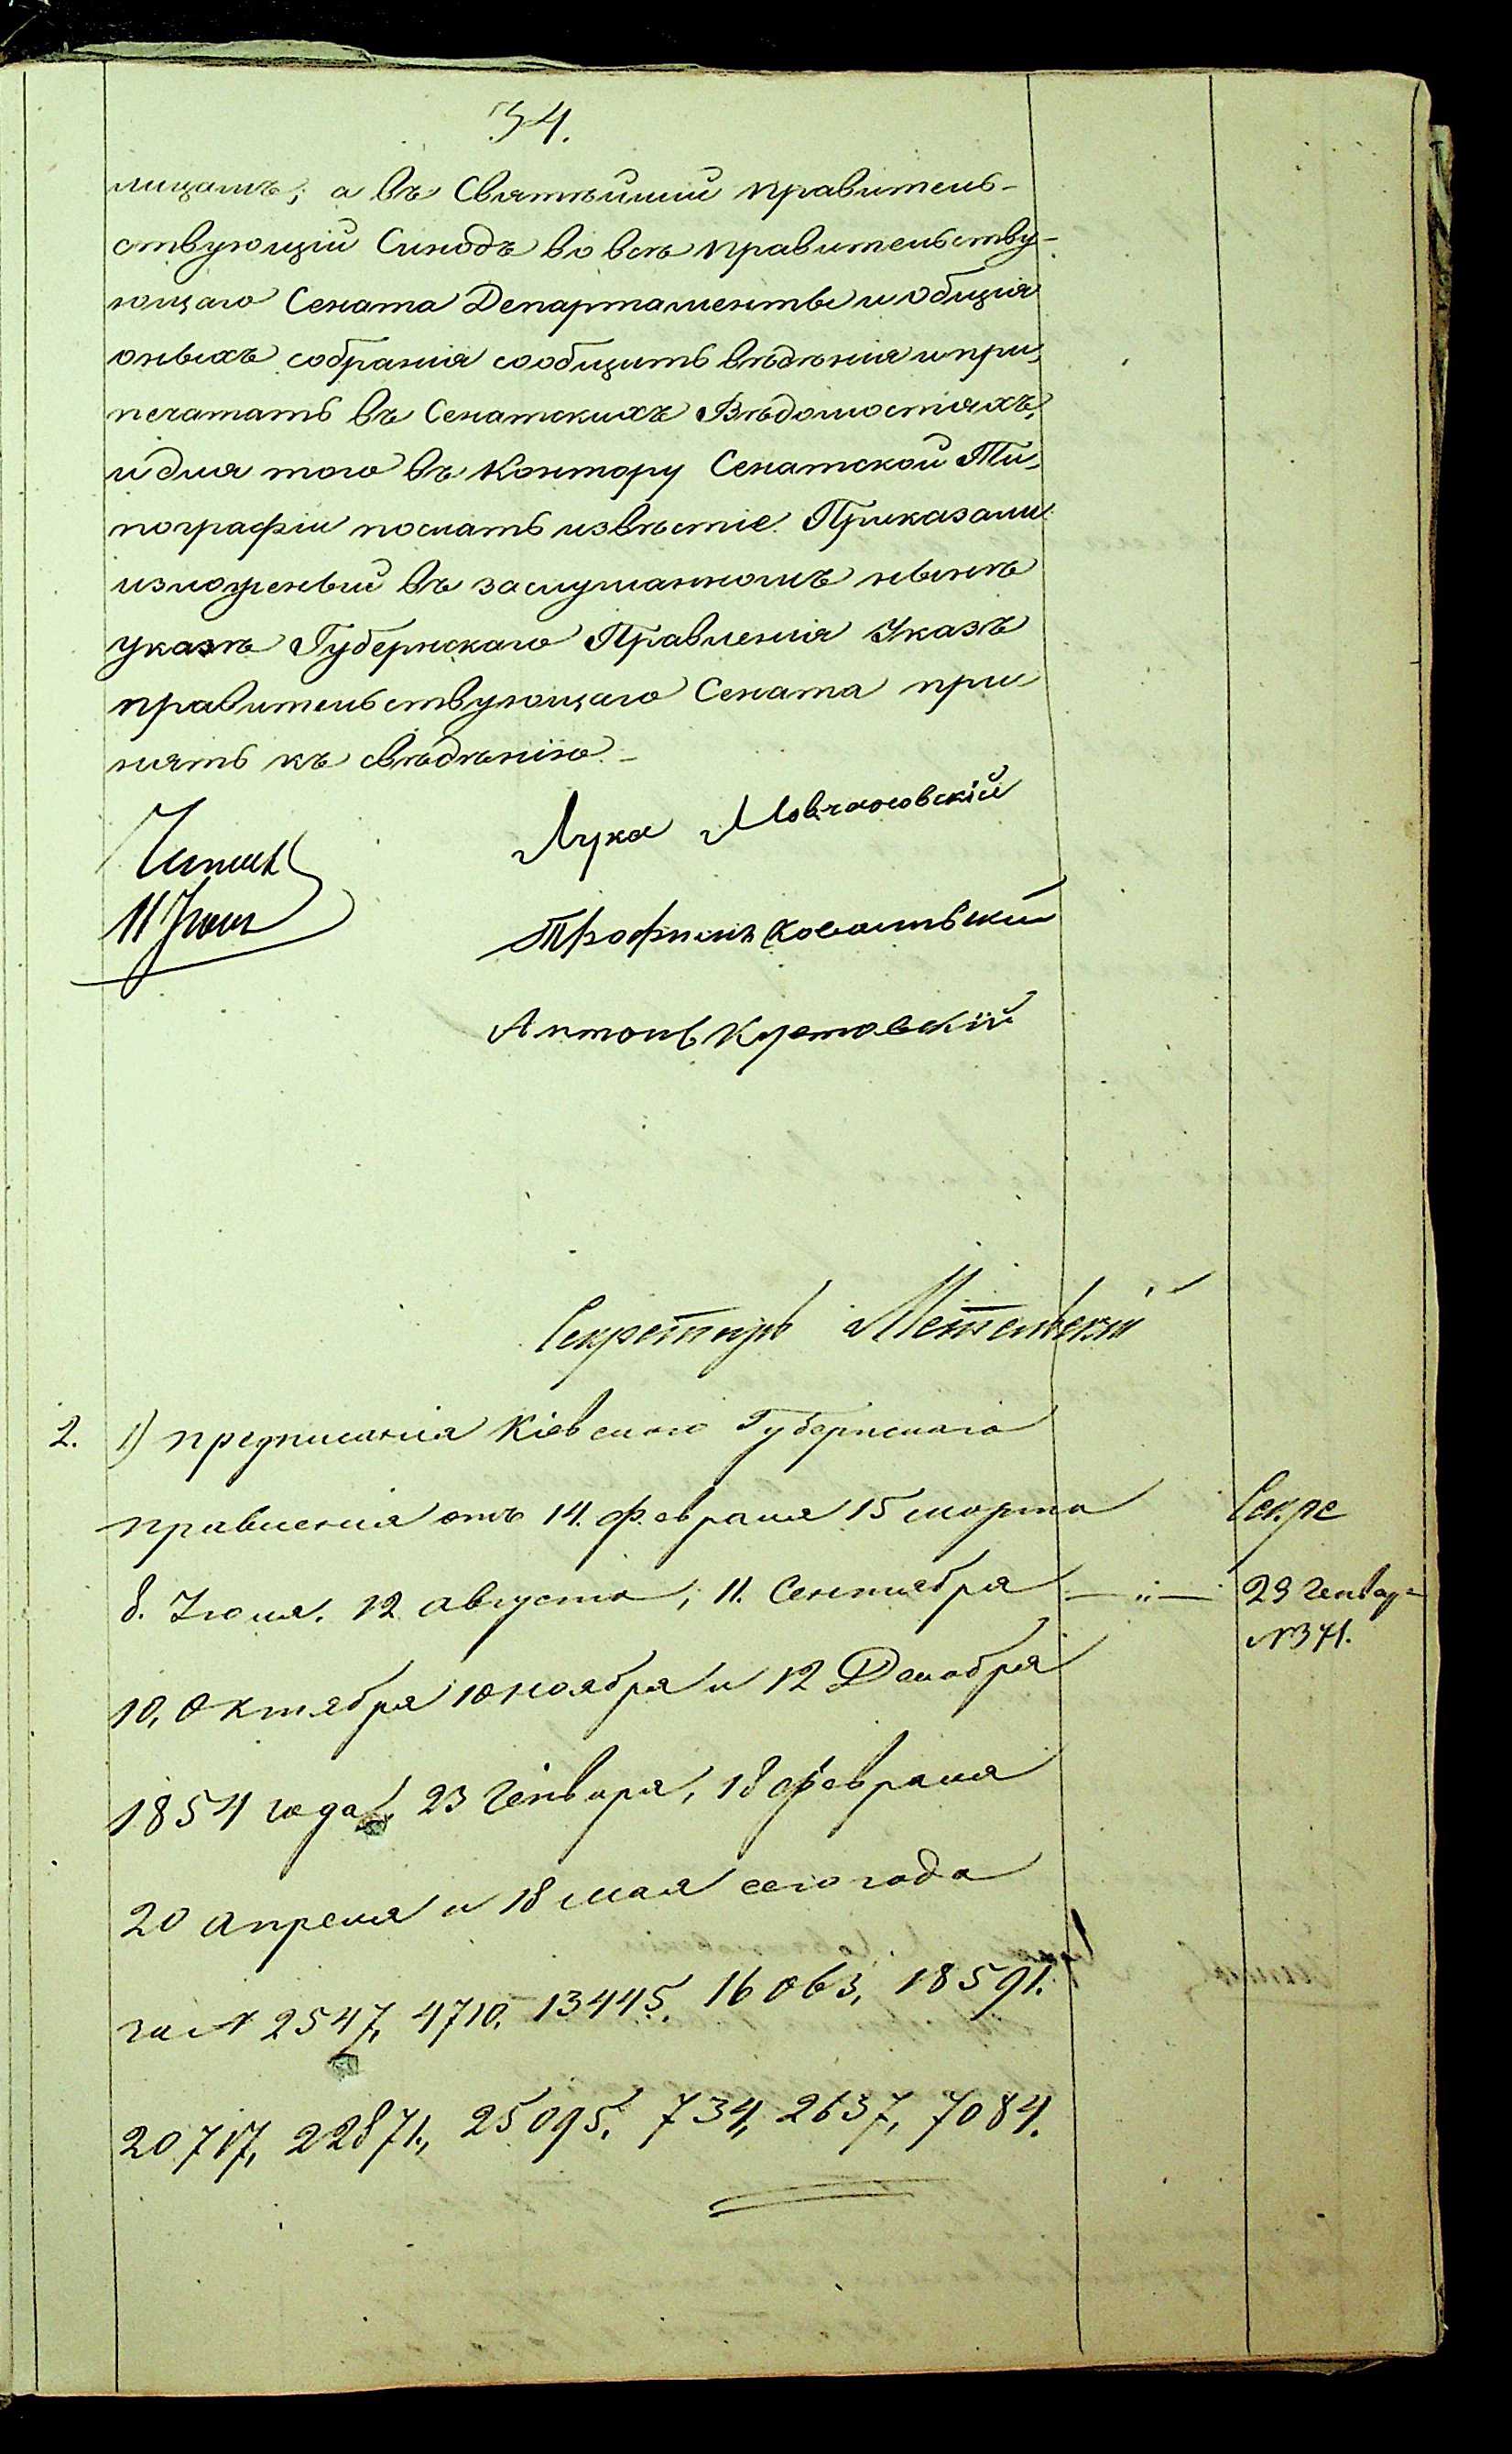 34.
лицамъ; а въ Святѣйшій правитель-
ствующій Синодъ во всѣ правительству-
ющаго Сената Департаменты и общія
оныхъ собранія сообщить вѣдѣнія и при-
печатать въ Сенатскихъ Вѣдомостяхъ,
и для того въ Контору Сенатской Ти-
пографіи послать извѣстіе. Приказали
изложеный въ заслушанномъ нынѣ
указѣ Губернскаго Правленія Указъ
правительствующаго Сената при-
нять къ свѣдѣнію. -
Лука
Читалъ
11 Іюня
Трофимъ Ковальвскій
Антонъ
Секретарь
2. 1) предписанія Кіевскаго Губернскаго
правленія отъ 14. февраля 15 марта
Секре
8. Іюля. 12 августа, 11. Сентября
29 Генвар
№ 371.
10, Октября 10 ноября и 12 Декабря
1854 года, 23 Генваря, 18 февраля
20 апреля и 18 мая сего года
за № 2547, 4710, 13445, 16063, 18591.
20717, 22871, 25095, 734, 2637, 7084.